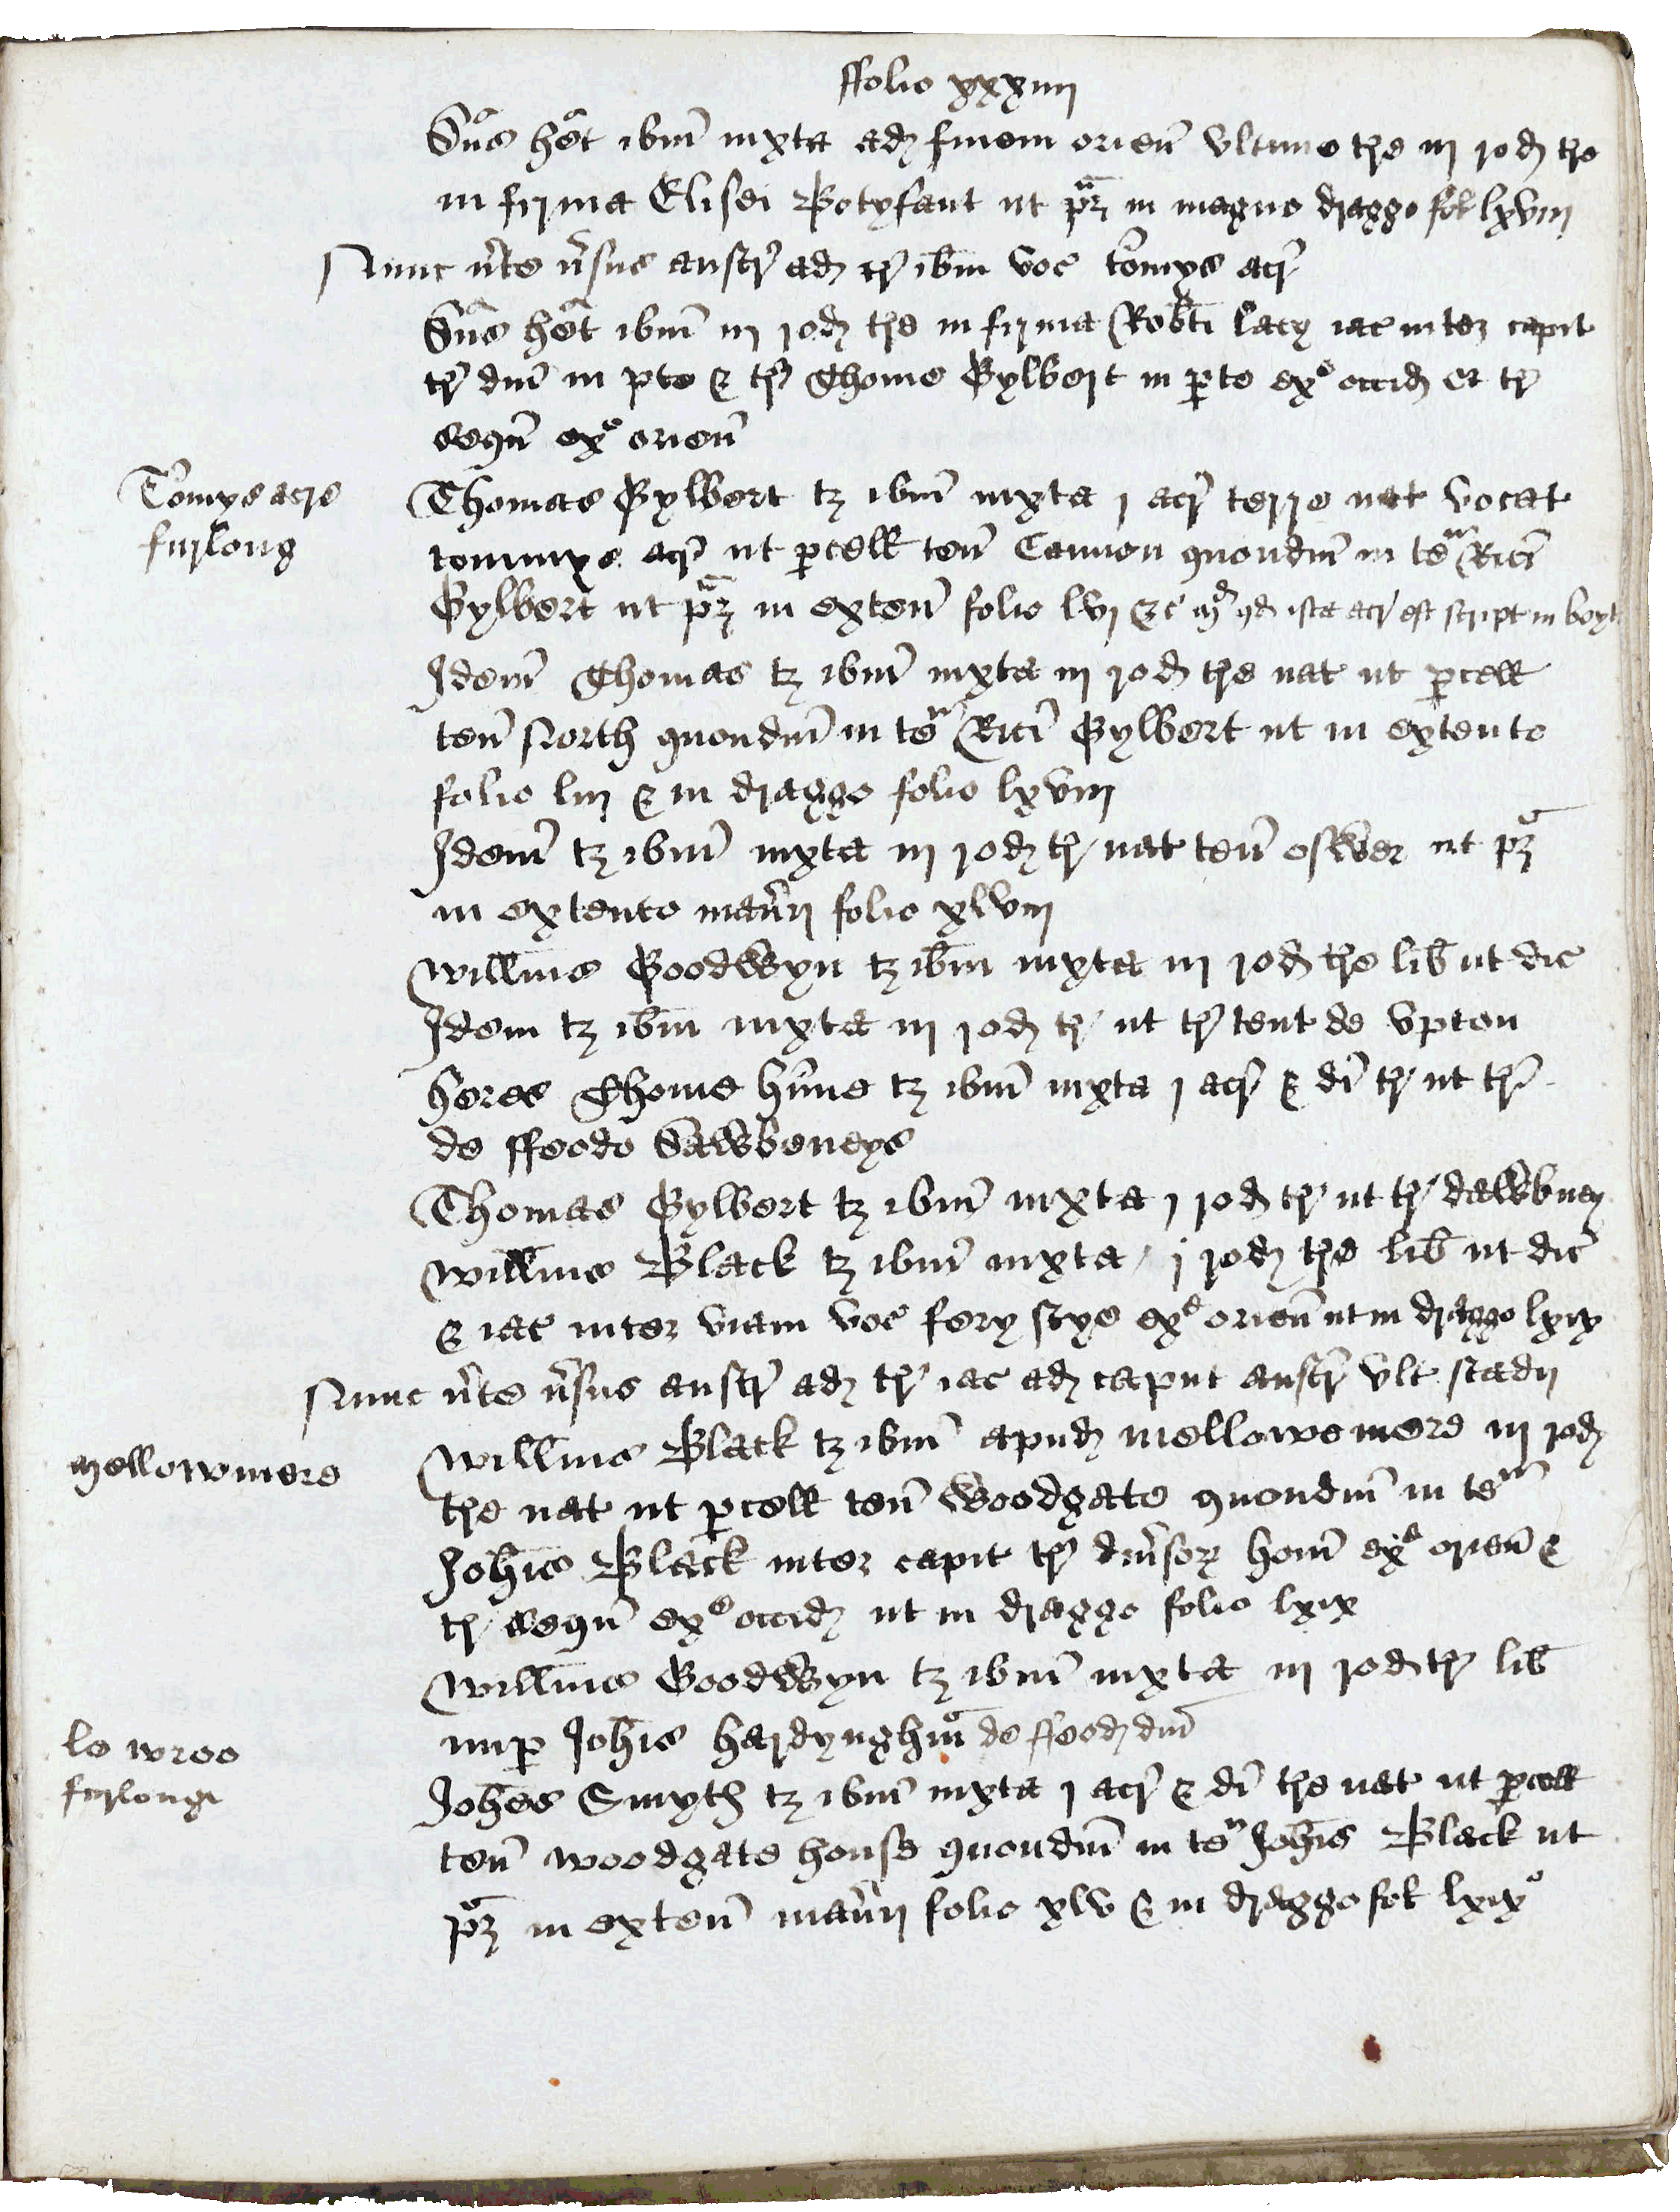 ffolio xxxiiij
Dn̄s het ibm̄ iuxta ad finem orien̄ ultime tre iij rod tre
in firma Elisei Botyfant ut pȝ in magno dragge fol lxviij
Nunc v̄te v̄sus austr̄ ad tr̄ ibm voc tomys acr̄
Dn̄s het ibm̄ iij rod tre in firma Robti lacy iac inter capit
tr̄ dn̄i in pte & tr̄ Thome Gylbert in pte exᵉ occid et tr̄
sequn̄ exᵉ orien̄
Tomys acre
furlong
Thomas Gylbert tȝ ibm̄ iuxta j acr̄ terre nat vocat
tommys acr̄ ut pcell ten̄ Cannon quondm̄ in teⁿ Rici
Gylbert ut pȝ in exten̄ folio lvj &c md qd ista acr est script in
Idem̄ Thomas tȝ ibm̄ iuxta iij rod tre nat ut pcell
ten̄ North quondm̄ in teⁿ Rici Gylbert ut in extente
folio liij & in dragge folio lxviij
Idem̄ tȝ ibm̄ iuxta iij rod tr̄ nat ten̄ ofwer ut pȝ
in extente man̄ij folio xlviij
Willm̄s Goodwyn tȝ ibm iuxta iij rod tre lib ut dic
Idem tȝ ibm iuxta iij rod tr̄ ut tr̄ tent de Upton
heres Thome hūne tȝ ibm̄ iuxta j acr̄ & di tr̄ ut tr̄
de ffeodo Dawbeneys
Thomas Gylbert tȝ ibm̄ iuxta j rod tr̄ ut tr̄ dawbney
Willm̄s Black tȝ ibm̄ iuxta j rod tre lib ut dic̄
& iac inter viam voc fery stye exᵉ orien̄ ut in dragge lxix
Nunc v̄te v̄sus austr̄ ad tr̄ iac ad caput austr̄ ult stadij
mellowmere
Willm̄s Black tȝ ibm̄ apud mellowe mere iij rod
tre nat ut pcell ten̄ Woodgate quondm̄ in teⁿ
Joh̄is Black inter capit tr̄ div̄sorꝝ hom̄ exᵉ orien̄ &
tr̄ sequn̄ exᵉ occid ut in dragge folio lxix
Willm̄s Goodwyn tȝ ibm̄ iuxta iij rod tr̄ lib
nup Joh̄is hardynghm̄ de ffeod dn̄i
le wroo
furlonge
Joh̄es Smyth tȝ ibm̄ iuxta j acr̄ & di tre nat ut pcell
ten̄ woodgate house quondm̄ in teⁿ Joh̄is Black ut
pȝ in exten̄ man̄ij folio xlv & in dragge fol lxixᵒ